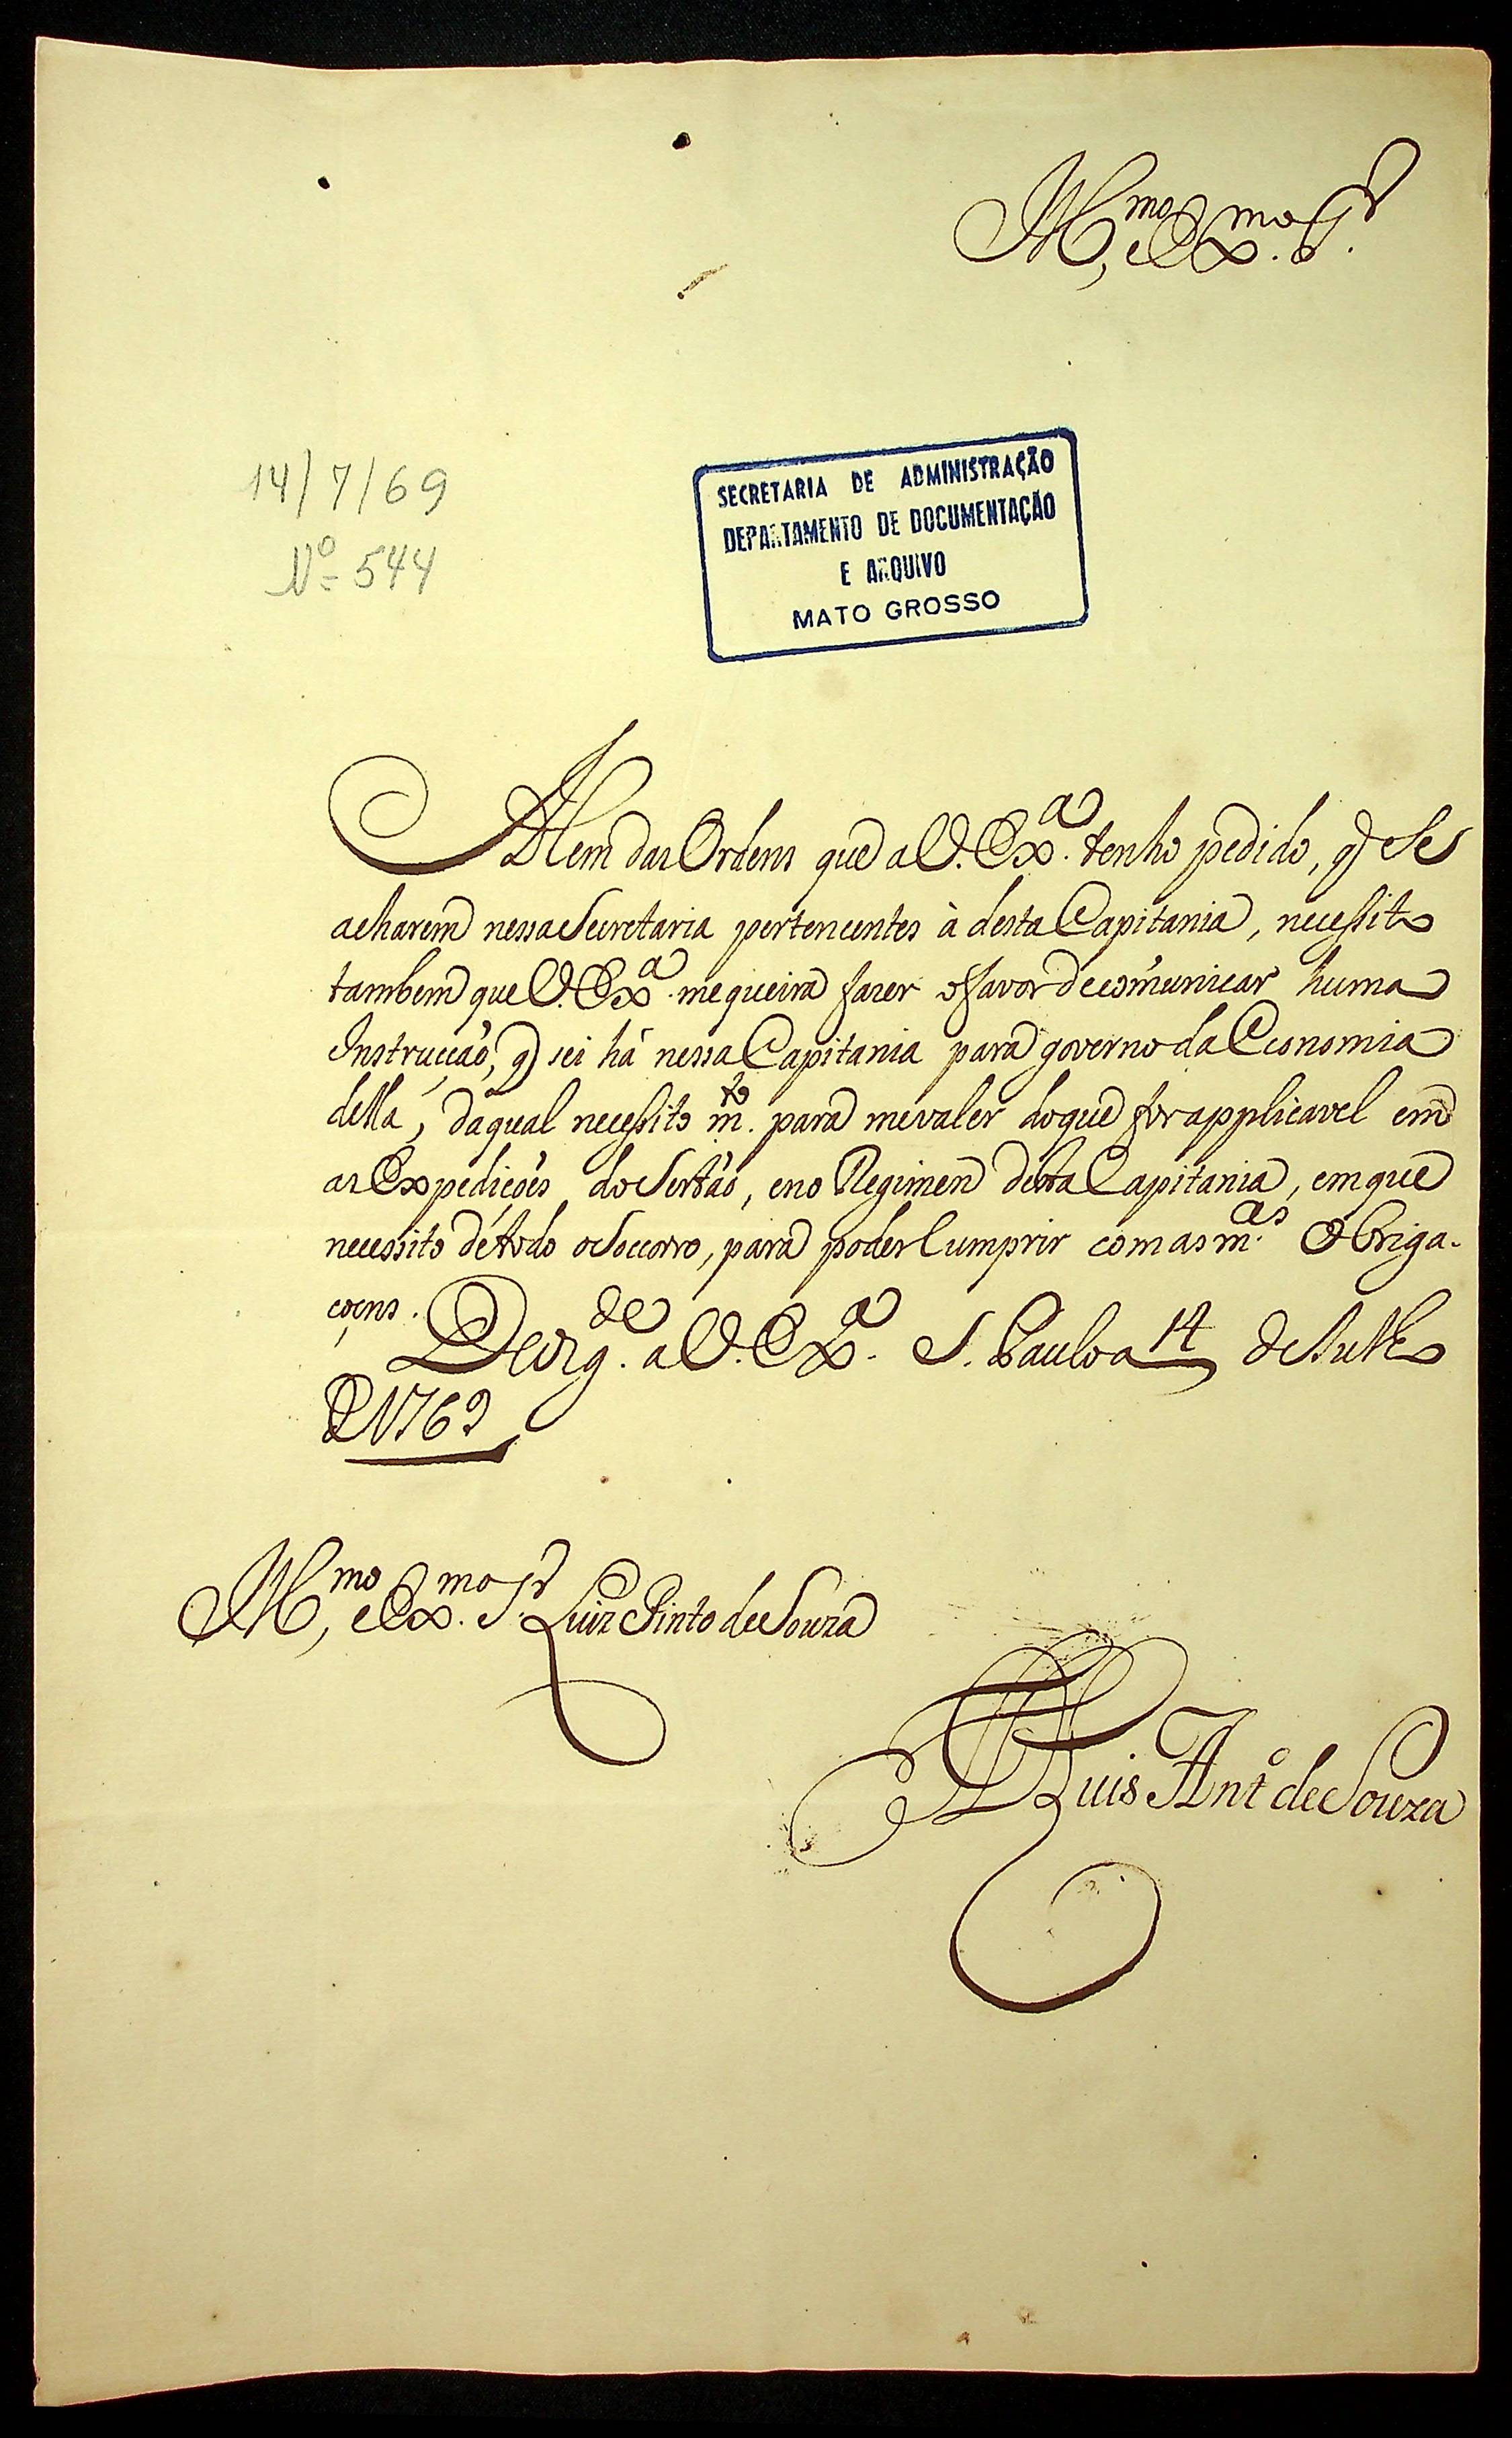 Ill.mo, e Ex.mo S.r
14/7/69
Nº 544
SECRETARIA DE ADMINISTRAÇÃO
DEPARTAMENTO DE DOCUMENTAÇÃO
E ARQUIVO
MATO GROSSO
Alem das Ordens que a V. Ex.a tenho pedido, q se
acharem nessa Secretaria pertencentes à desta Capitania, necessito
tambem que V. Ex.a me queira fazer o favor de comunicar huma
Instrucçaõ, q sei há nessa Capitania para governo da Economia
della, da qual necessito m.to para me valer do que for applicavel em
as Expediçoẽs do Sertaõ, e no Regimen desta Capitania, em que
necessito de todo o Soccorro, para poder Cumprir com as m.as Obriga-
çoens.
Deos g.de a V. Ex.a S. Paulo a 14 de Julho
de 1769
Ill.mo, e Ex.mo S.r Luiz Pinto de Souza
D. Luis Ant.º de Souza